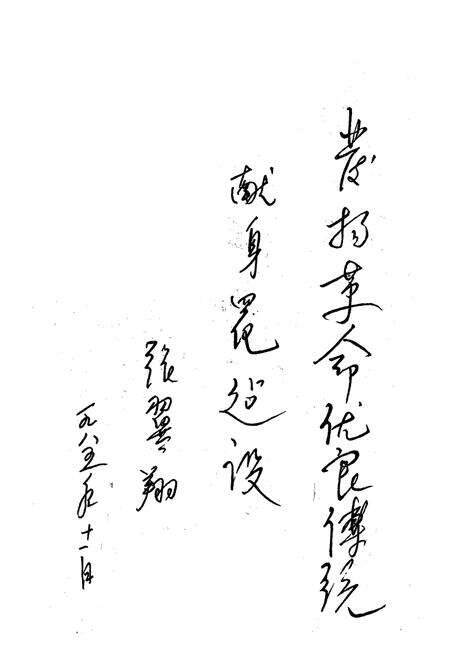 发扬革命优良传统
献身四化建设
张翼翔
一九八五年十一月